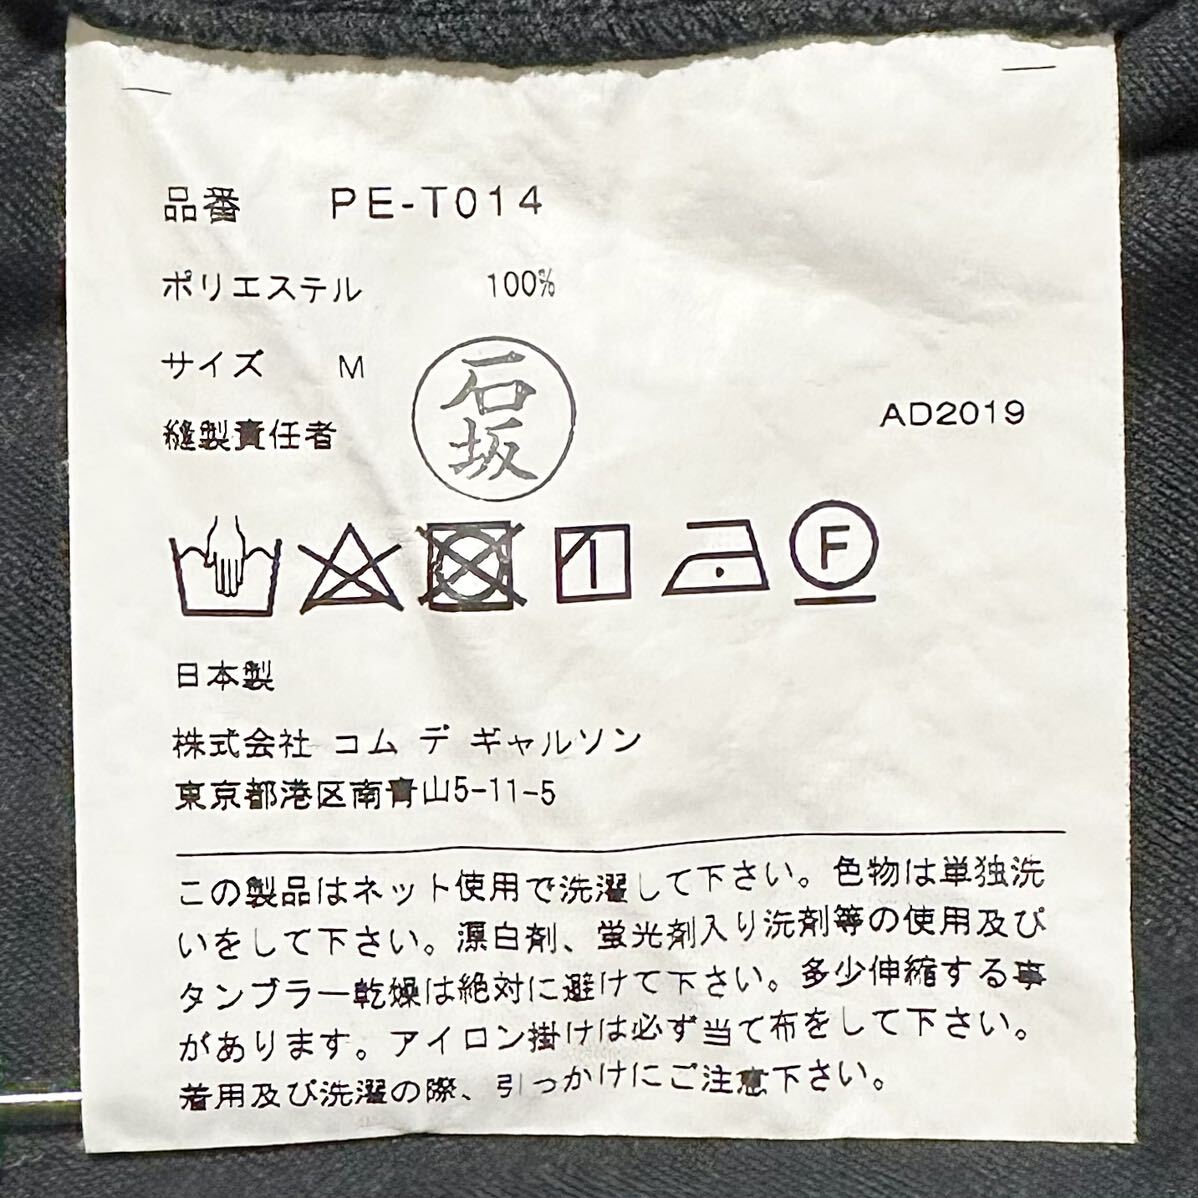 品番 PE-T014
ポリエステル 100%
サイズ M
石坂
AD2019
縫製責任者
F
日本製
株式会社 コム デ ギャルソン
東京都港区南青山5-11-5
この製品はネット使用で洗濯して下さい。色物は単独洗
いをして下さい。漂白剤、蛍光剤入り洗剤等の使用及び
タンブラー乾燥は絶対に避けて下さい。多少伸縮する事
があります。アイロン掛けは必ず当て布をして下さい。
着用及び洗濯の際、引っかけにご注意下さい。